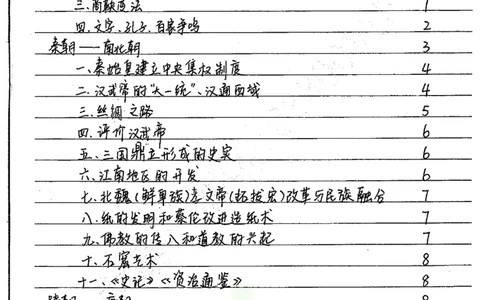 三.商鞅变法 1
四.文字、孔子、百家争鸣 2
秦朝——南北朝 3
一、秦始皇建立中央集权制度 4
二.汉武帝的"大一统"、汉通西域 4
三.丝绸之路 5
四.评价汉武帝 6
五、三国鼎立形成的史实 6
六、江南地区的开发 6
七.北魏(鲜卑族)孝文帝(拓拔宏)改革与民族融合 7
八.纸的发明和蔡伦改进造纸术 7
九.佛教的传入和道教的兴起 7
十、石窟艺术 8
十一、《史记》《资治通鉴》 8
8